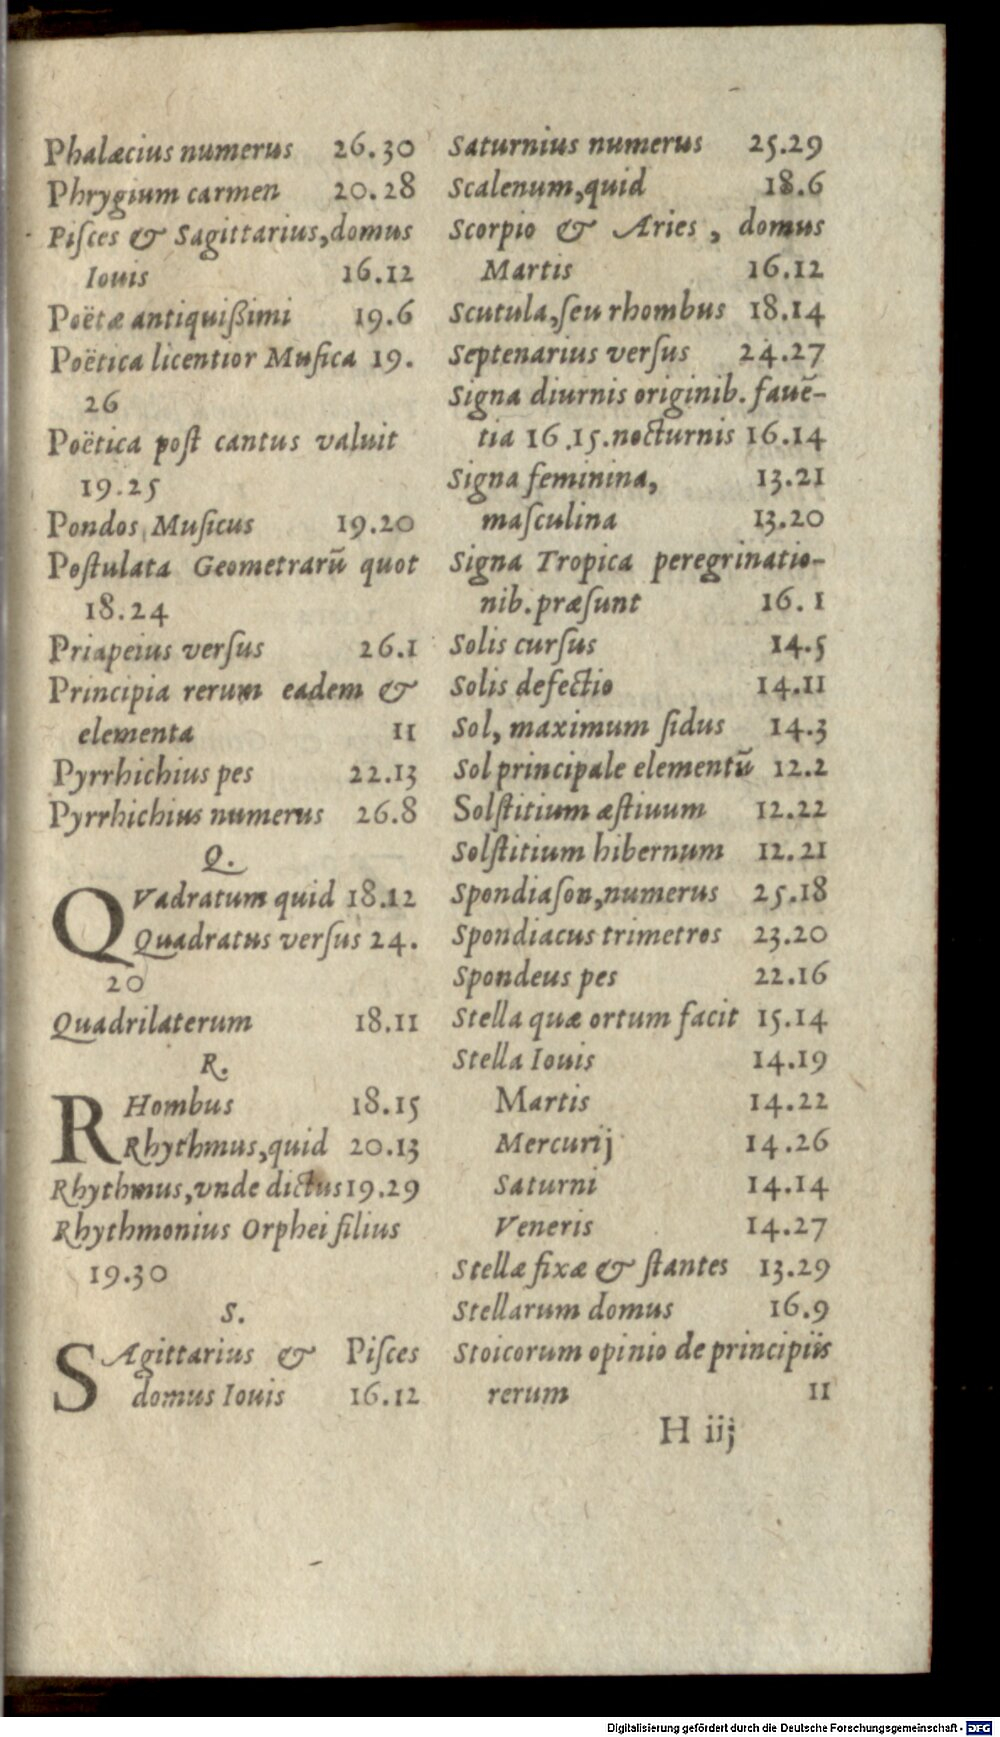 Phalæcius numerus 26.30
Phrygium carmen 20.28
Piſces & Sagittarius, domus
Iouis 16.12
Poëtæ antiquißimi 19.6
Poëtica licentior Muſica 19.
26
Poëtica poſt cantus valuit
19.25
Pondos Muſicus 19.20
Poſtulata Geometrarū quot
18.24
Priapeius verſus 26.1
Principia rerum eadem &
elementa 11
Pyrrhichius pes 22.13
Pyrrhichius numerus 26.8
Q.
QVadratum quid 18.12
Quadratus verſus 24.
20
Quadrilaterum 18.11
R.
RHombus 18.15
Rhythmus, quid 20.13
Rhythmus, vnde dictus 19.29
Rhythmonius Orphei filius
19.30
S.
SAgittarius & Piſces
domus Iouis 16.12
Saturnius numerus 25.29
Scalenum, quid 18.6
Scorpio & Aries, domus
Martis 16.12
Scutula, ſeu rhombus 18.14
Septenarius verſus 24.27
Signa diurnis originib. fauē-
tia 16.15. nocturnis 16.14
Signa feminina, 13.21
maſculina 13.20
Signa Tropica peregrinatio-
nib. præſunt 16.1
Solis curſus 14.5
Solis defectio 14.11
Sol, maximum ſidus 14.3
Sol principale elementū 12.2
Solſtitium æſtiuum 12.22
Solſtitium hibernum 12.21
Spondiaſon, numerus 25.18
Spondiacus trimetros 23.20
Spondeus pes 22.16
Stella quæ ortum facit 15.14
Stella Iouis 14.19
Martis 14.22
Mercurij 14.26
Saturni 14.14
Veneris 14.27
Stellæ fixæ & ſtantes 13.29
Stellarum domus 16.9
Stoicorum opinio de principiis
rerum 11
H iij
Digitalisierung gefördert durch die Deutsche Forschungsgemeinschaft - DFG